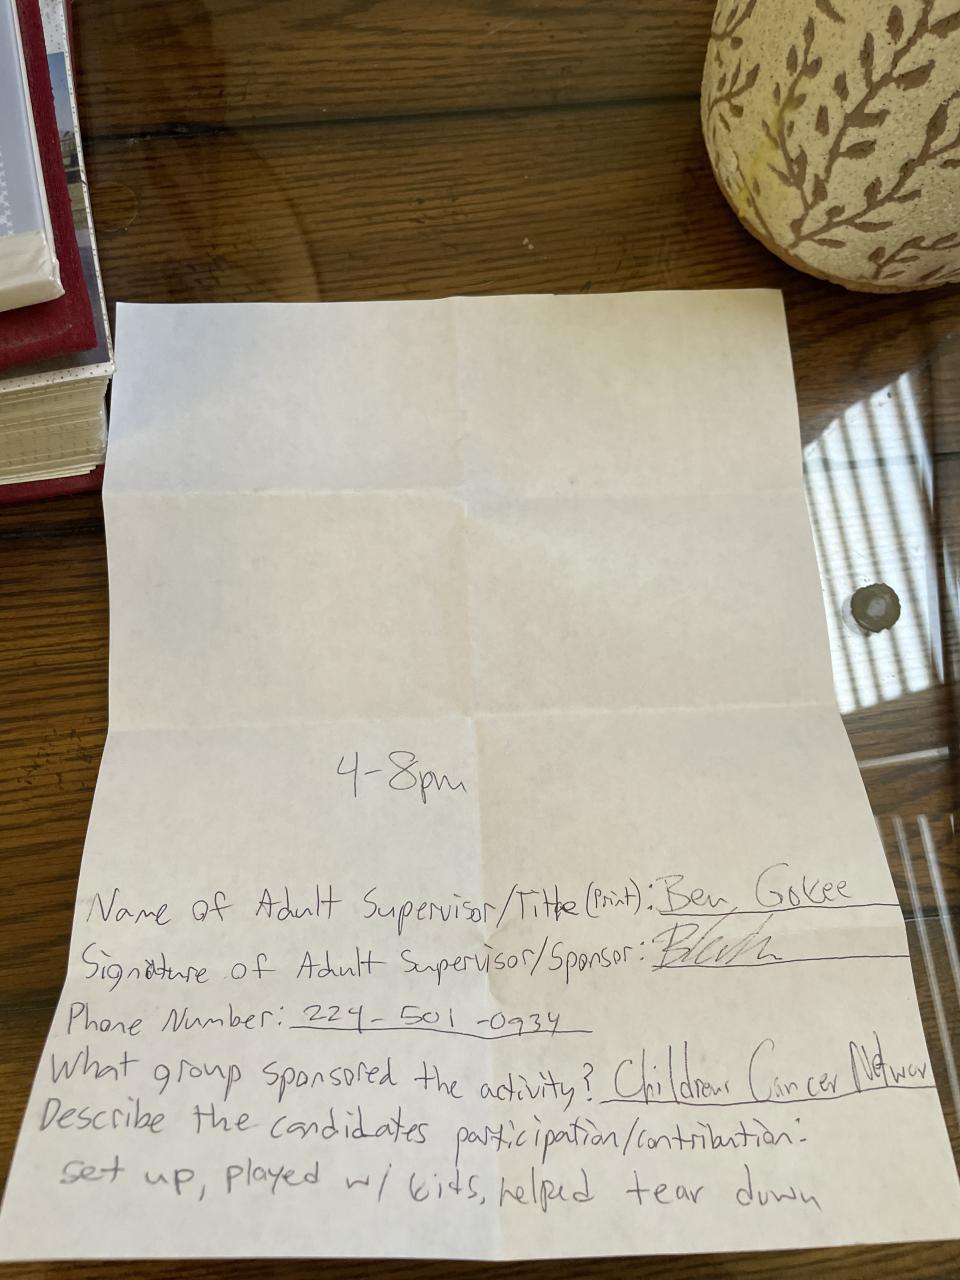 4-8pm
Name of Adult Supervisor/Title (Print): Ben Gokee
Signature of Adult Supervisor/Sponsor:
Phone Number: 224-501-0934
What group sponsored the activity? Childrens Cancer Networ
Describe the candidates participation/contribution:
set up, played w/ kids, helped tear down